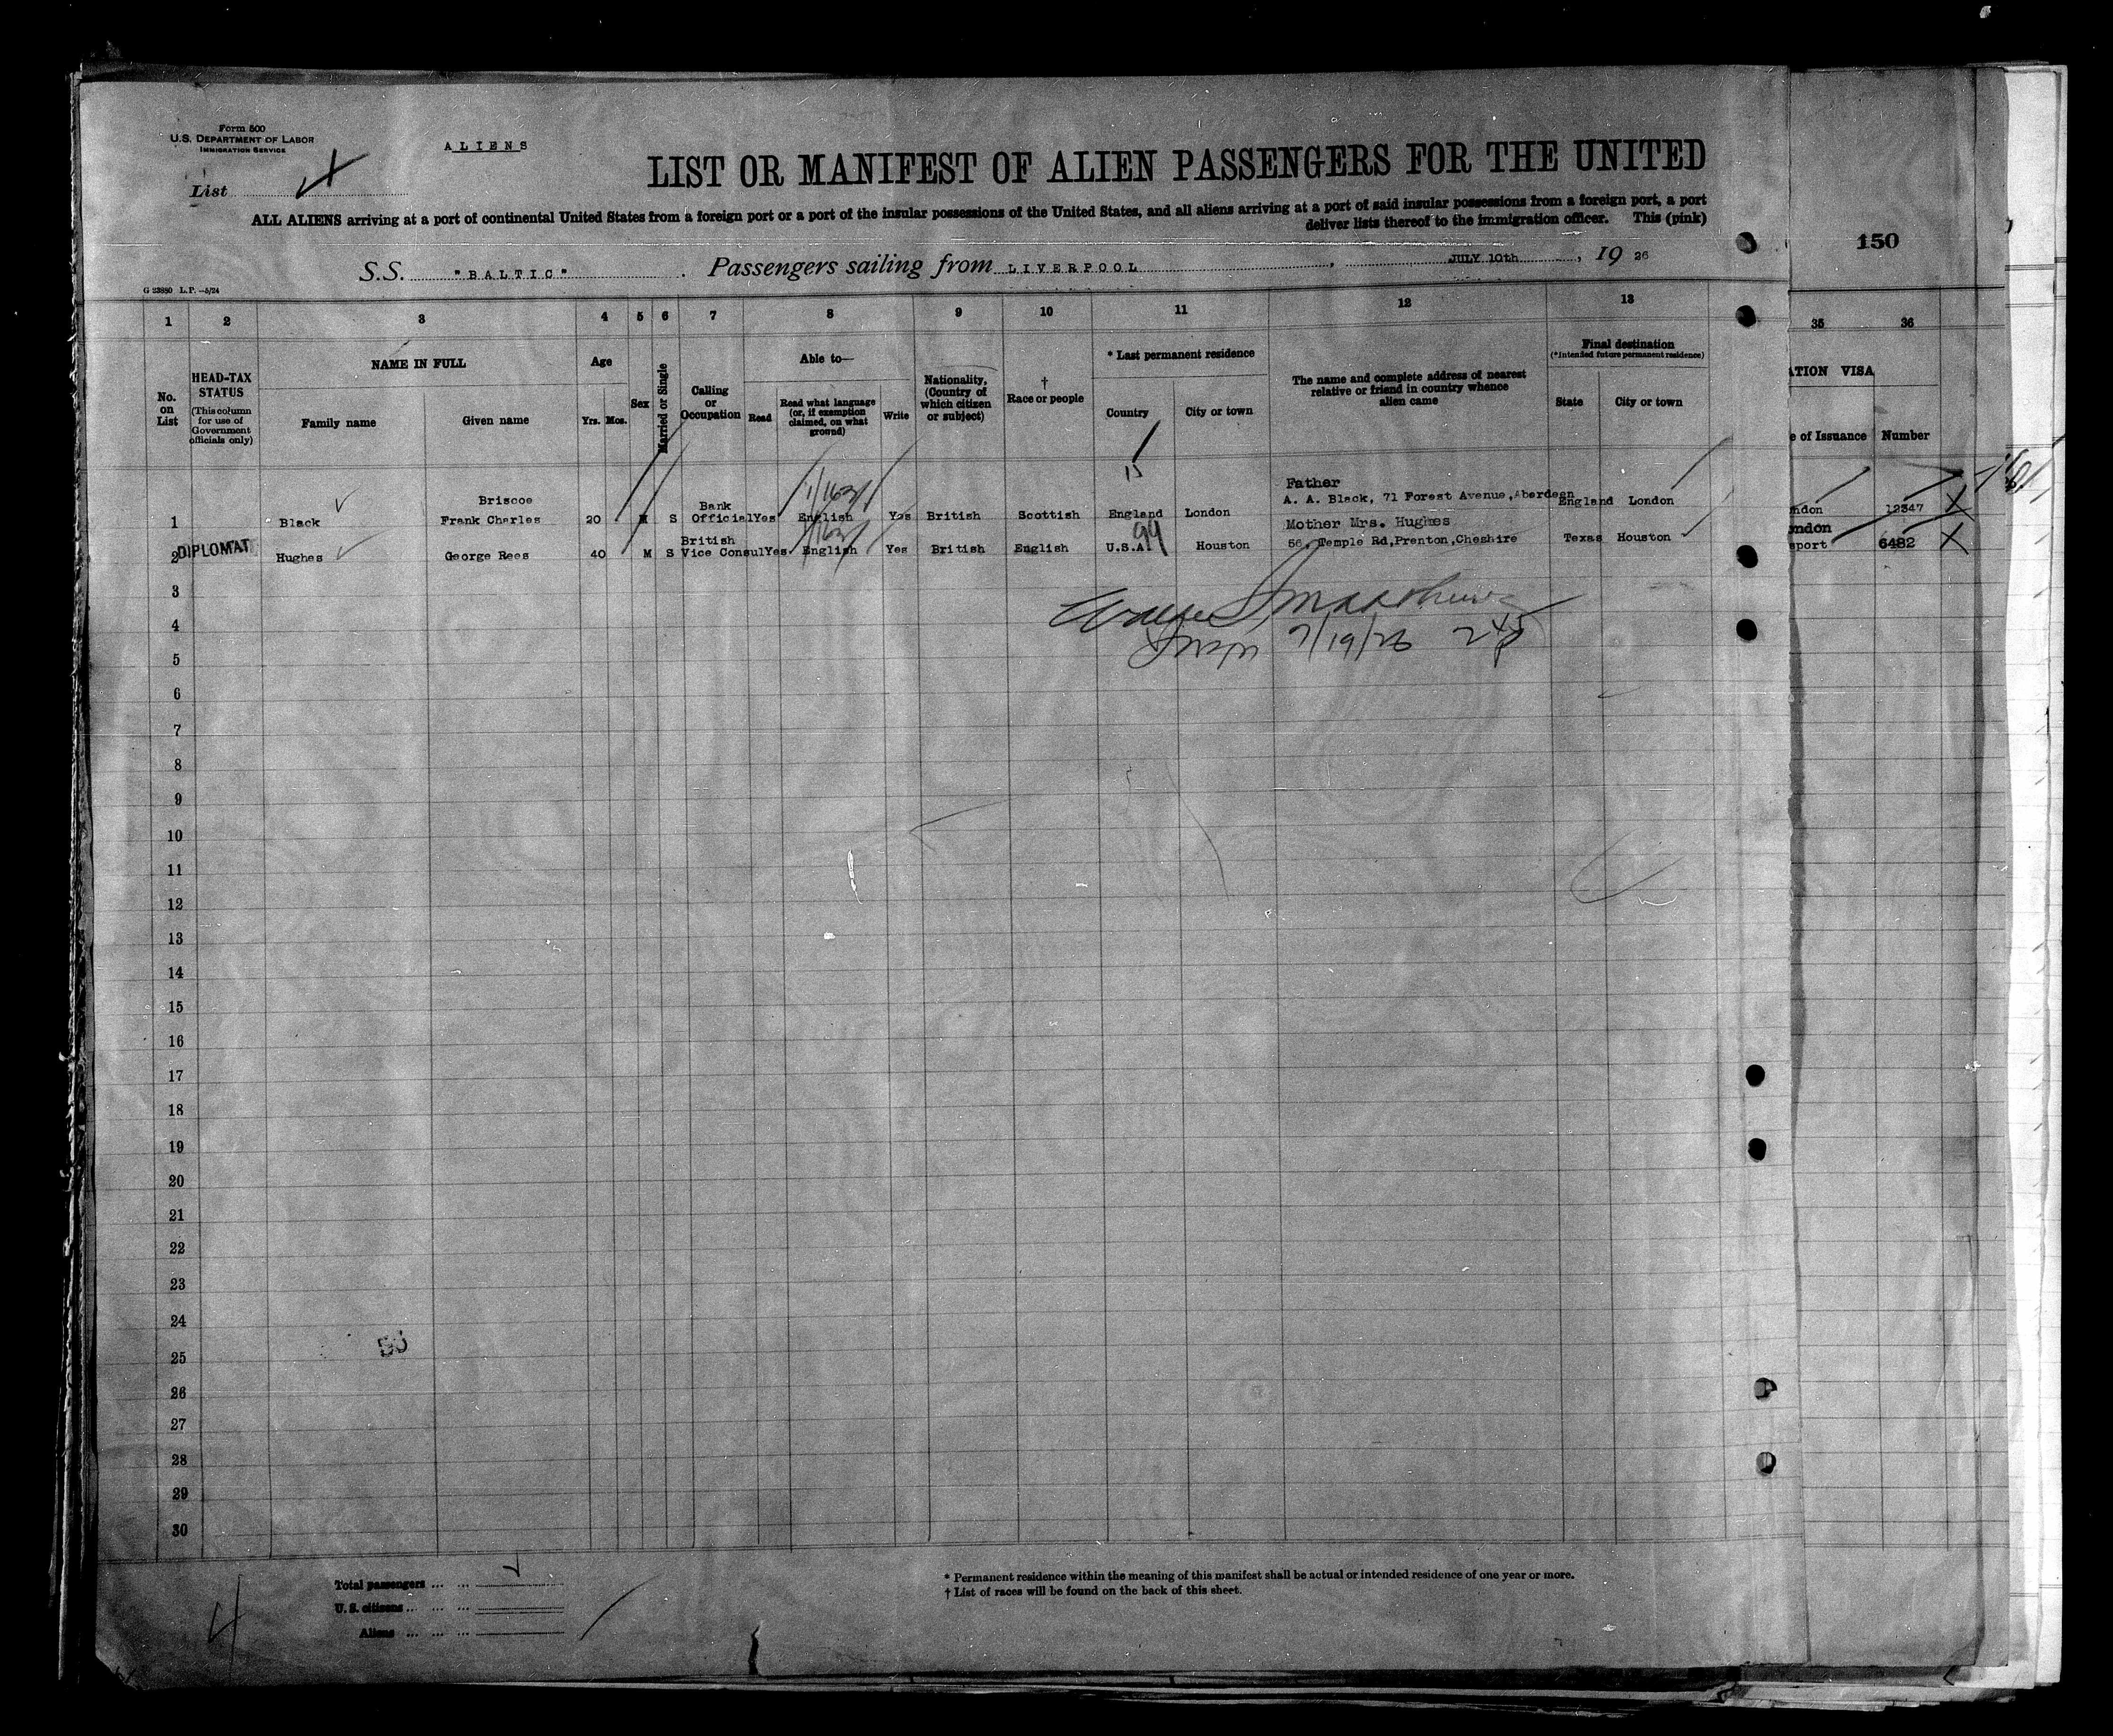 Form 500
U.S. DEPARTMENT OF LABOR
IMMIGRATION SERVICE
ALIENS
List
LIST OR MANIFEST OF ALIEN PASSENGERS FOR THE UNITED
ALL ALIENS arriving at a port of continental United States from a foreign port or a port of the insular possessions of the United States, and all aliens arriving at a port of said insular possessions from a foreign port, a port
deliver lists thereof to the immigration officer. This (pink)
150
S.S. "BALTIC" . Passengers sailing from LIVERPOOL , JULY 10th , 19 26
G 23850 L.P.—5/24
1 2 3 4 5 6 7 8 9 10 11 12 13 35 36
No. on List
HEAD-TAX STATUS
(This column for use of Government officials only)
NAME IN FULL
Family name
Given name
Age
Yrs. Mos.
Sex
Married or Single
Calling or Occupation
Able to—
Read
Read what language (or, if exemption claimed, on what ground)
Write
Nationality, (Country of which citizen or subject)
† Race or people
* Last permanent residence
Country
City or town
The name and complete address of nearest relative or friend in country whence alien came
Final destination
(*Intended future permanent residence)
State
City or town
ATION VISA
e of Issuance
Number
15
Briscoe Bank Father
A. A. Black, 71 Forest Avenue, Aberdeen
1 Black Frank Charles 20 M S Official Yes English Yes British Scottish England London England London ndon 12347
British 99 Mother Mrs. Hughes ondon
2 DIPLOMAT Hughes George Rees 40 M S Vice Consul Yes English Yes British English U.S.A. Houston 56, Temple Rd, Prenton, Cheshire Texas Houston sport 6482
3
4
7/19/26
5
6
7
8
9
10
11
12
13
14
15
16
17
18
19
20
21
22
23
24
25
26
27
28
29
30
Total passengers ... ...
U. S. citizens ... ... ...
Aliens ... ... ...
* Permanent residence within the meaning of this manifest shall be actual or intended residence of one year or more.
† List of races will be found on the back of this sheet.